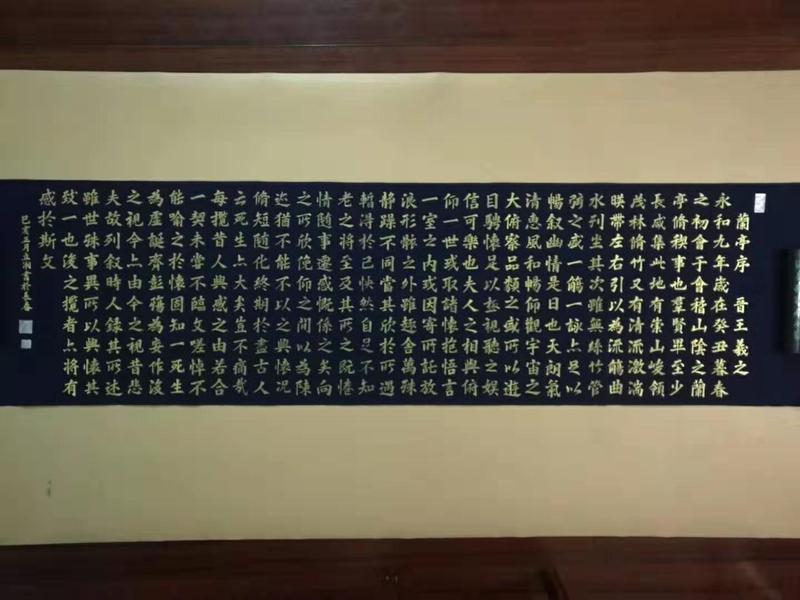 蘭亭序 晉王羲之
永和九年歲在癸丑暮春
之初會于會稽山陰之蘭
亭脩稧事也羣賢畢至少
長咸集此地有崇山峻領
茂林脩竹又有清流激湍
暎帶左右引以為流觴曲
水列坐其次雖無絲竹管
弦之盛一觴一詠亦足以
暢敘幽情是日也天朗氣
清惠風和暢仰觀宇宙之
大俯察品類之盛所以遊
目騁懷足以極視聽之娛
信可樂也夫人之相與俯
仰一世或取諸懷抱悟言
一室之內或因寄所託放
浪形骸之外雖趣舍萬殊
靜躁不同當其欣於所遇
暫得於己快然自足不知
老之將至及其所之既惓
情隨事遷感慨係之矣向
之所欣俛仰之間以為陳
迹猶不能不以之興懷況
脩短隨化終期於盡古人
云死生亦大矣豈不痛哉
每攬昔人興感之由若合
一契未嘗不臨文嗟悼不
能喻之於懷固知一死生
為虛誕齊彭殤為妄作後
之視今亦由今之視昔悲
夫故列敘時人錄其所述
雖世殊事異所以興懷其
致一也後之攬者亦將有
感於斯文
己亥五月書於長春